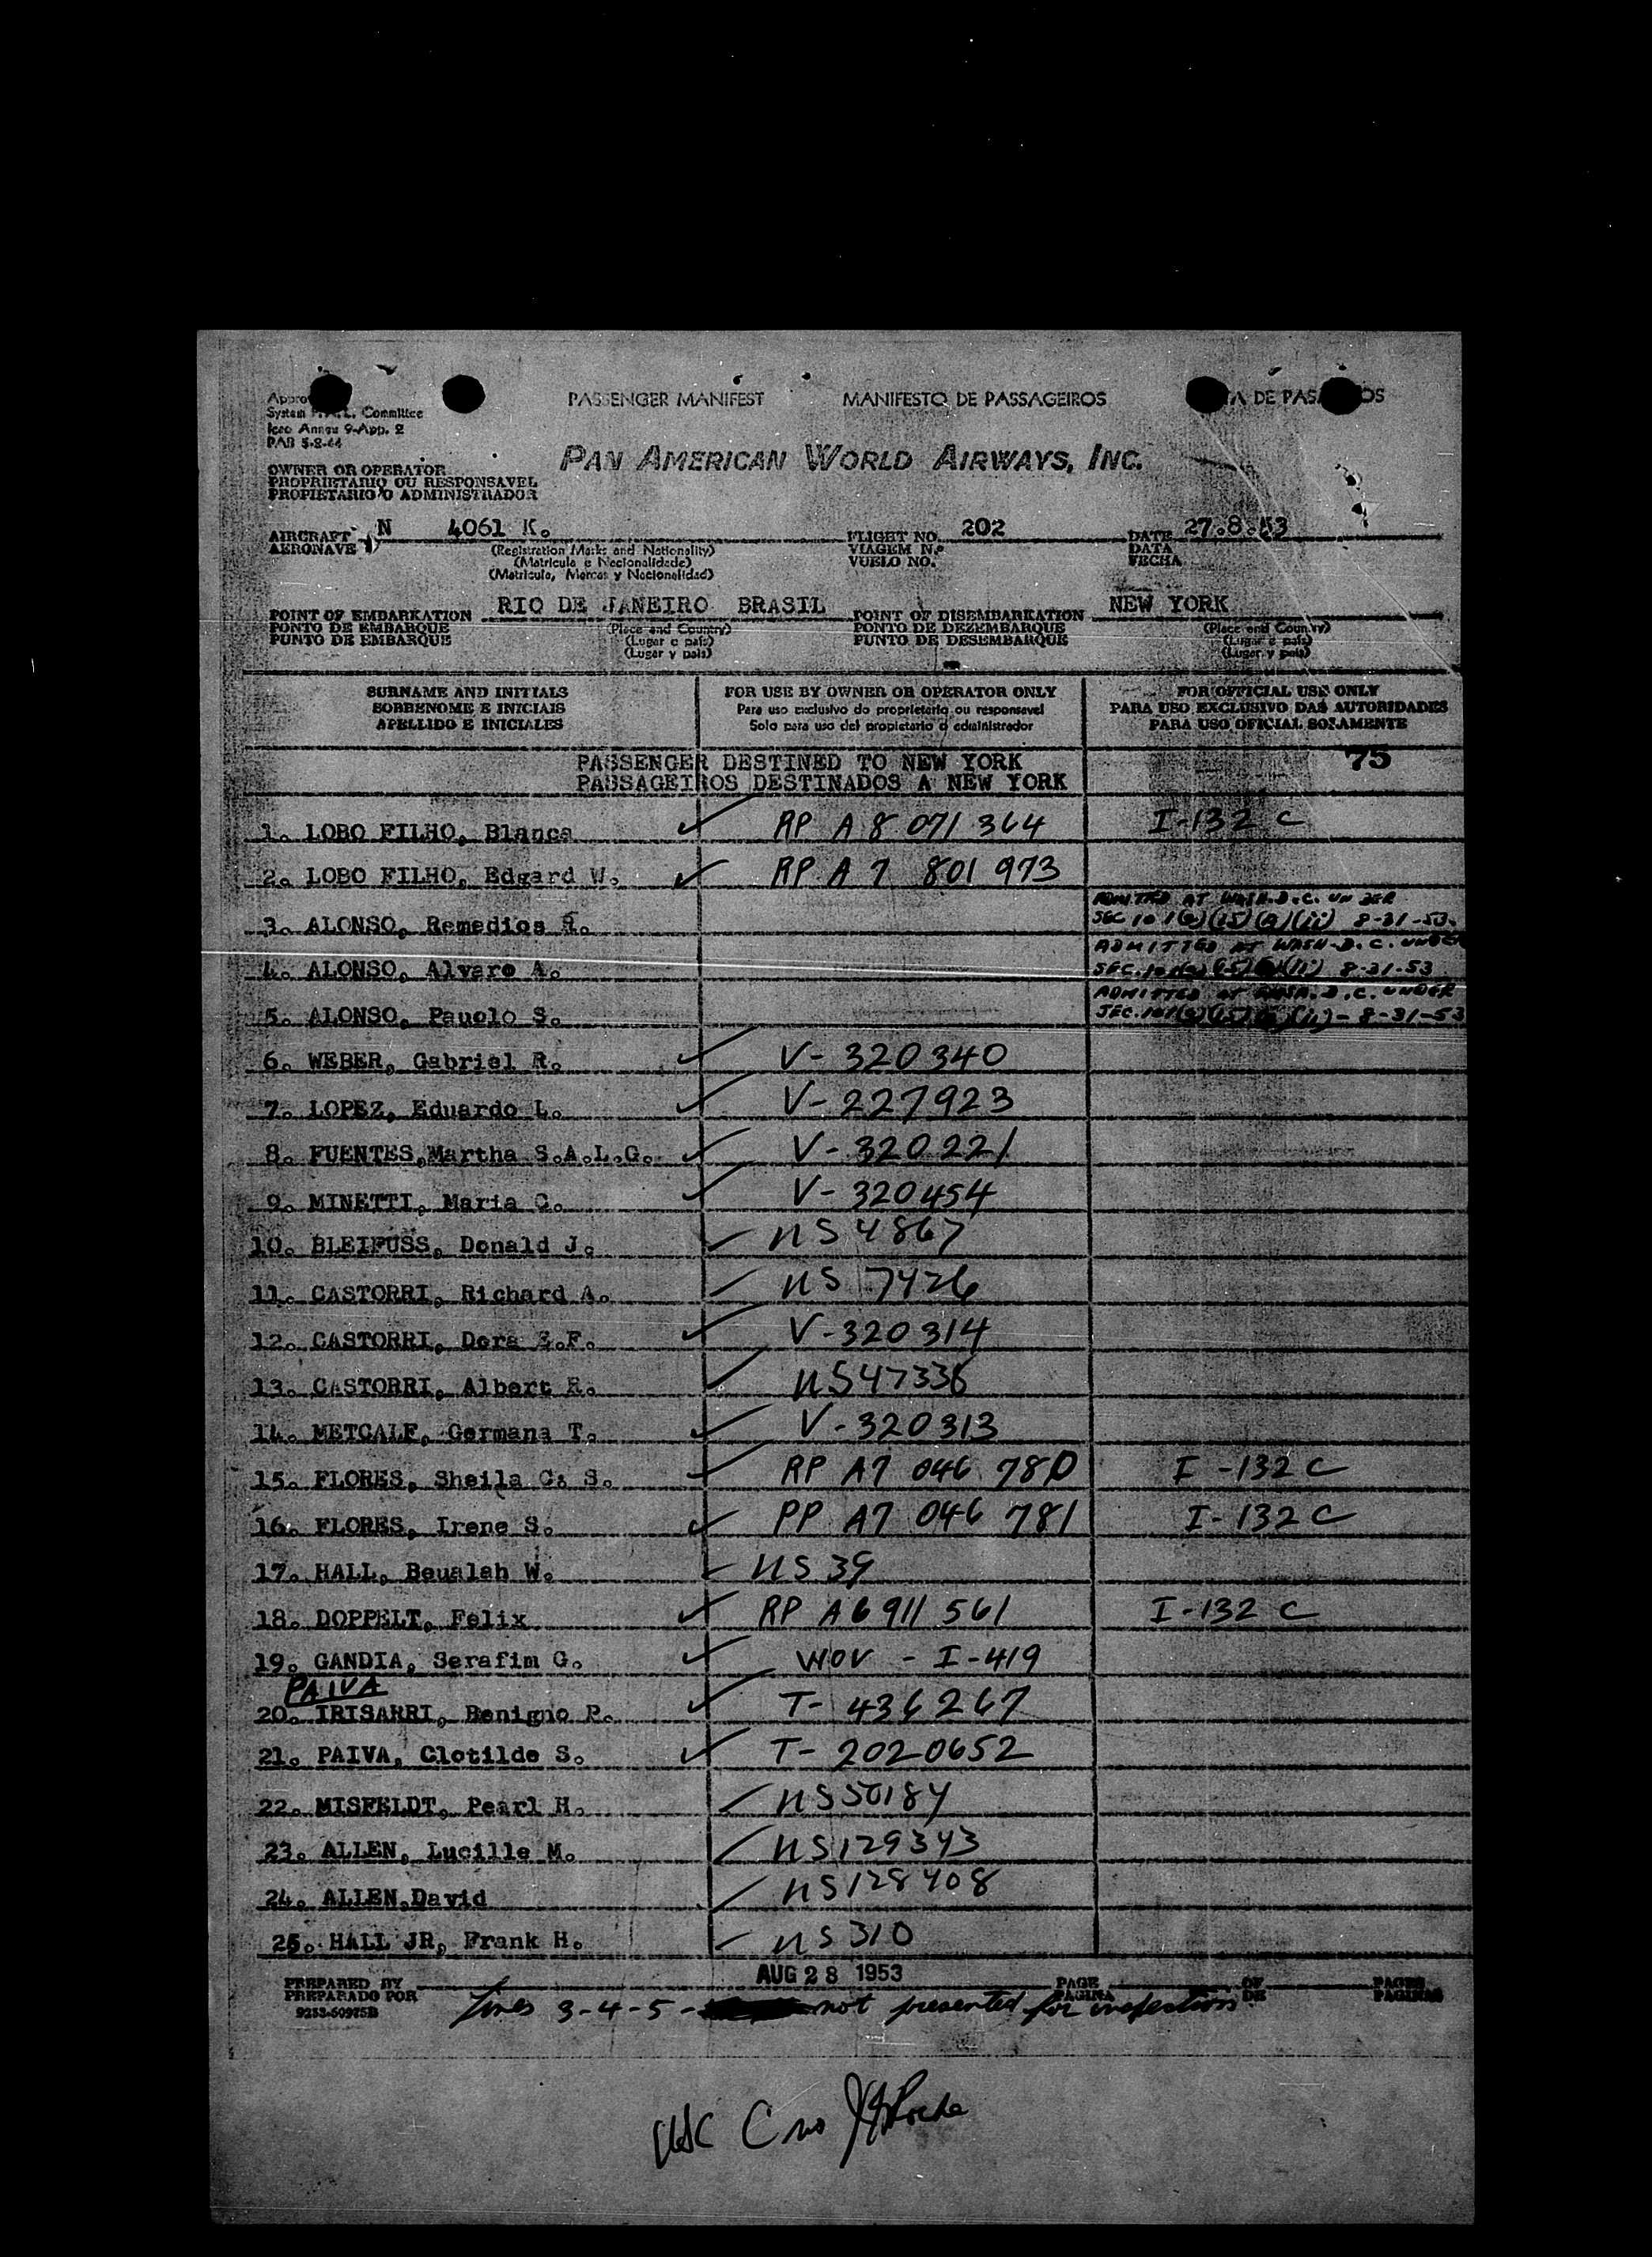 PASSENGER MANIFEST MANIFESTO DE PASSAGEIROS DE
System Committee
Icao Annex 9-App. 2
PAB 5-2-44
PAN AMERICAN WORLD AIRWAYS, INC.
OWNER OR OPERATOR
PROPRIETARIO OU RESPONSAVEL
PROPIETARIO O ADMINISTRADOR
AIRCRAFT N 4061 K. FLIGHT NO. 202 DATE 27.8.53
AERONAVE (Registration Marks and Nationality) VIAGEM N.º DATA
(Matricula e Nacionalidade) VUELO NO. FECHA
(Matricula, Marcas y Nacionalidad)
POINT OF EMBARKATION RIO DE JANEIRO BRASIL POINT OF DISEMBARKATION NEW YORK
PONTO DE EMBARQUE (Place and Country) PONTO DE DEZEMBARQUE (Place and Country)
PUNTO DE EMBARQUE (Lugar e pais) PUNTO DE DESEMBARQUE (Lugar e pais)
(Lugar y pais) (Lugar y pais)
SURNAME AND INITIALS FOR USE BY OWNER OR OPERATOR ONLY FOR OFFICIAL USE ONLY
SOBRENOME E INICIAIS Para uso exclusivo do proprietario ou responsavel PARA USO EXCLUSIVO DAS AUTORIDADES
APELLIDO E INICIALES Solo para uso del propietario o administrador PARA USO OFICIAL SOLAMENTE
PASSENGER DESTINED TO NEW YORK 75
PASSAGEIROS DESTINADOS A NEW YORK
1. LOBO FILHO, Blanca ✓ RP A 8 071 364 I-132 C
2. LOBO FILHO, Edgard W. ✓ RP A 7 801 973
3. ALONSO, Remedios R. ADMITTED AT WASH.D.C. UNDER
SEC 101(a)(15)(a)(ii) 8-31-53.
4. ALONSO, Alvaro A. ADMITTED AT WASH.D.C. UNDER
SEC.101(a)(15)(a)(ii) 8-31-53
5. ALONSO, Pauolo S. ADMITTED AT WASH.D.C. UNDER
SEC.101(a)(15)(a)(ii)-8-31-53
6. WEBER, Gabriel R. ✓ V-320340
7. LOPEZ, Eduardo L. ✓ V-227923
8. FUENTES,Martha S.A.L.G. ✓ V-320221
9. MINETTI, Maria C. ✓ V-320454
10. BLEIFUSS, Donald J. ✓ US 4867
11. CASTORRI, Richard A. ✓ US 7426
12. CASTORRI, Dora E.F. ✓ V-320314
13. CASTORRI, Albert R. ✓ US47336
14. METCALF, Germana T. ✓ V-320313
15. FLORES, Sheila C. S. ✓ RP A7 046 780 I-132 C
16. FLORES, Irene S. ✓ PP A7 046 781 I-132 C
17. HALL, Beualah W. ✓ US 39
18. DOPPELT, Felix ✓ RP A6 911 561 I-132 C
19. GANDIA, Serafim G. ✓ WOV - I-419
PAIVA
20. IRISARRI, Benigno P. ✓ T-436267
21. PAIVA, Clotilde S. ✓ T-2020652
22. MISFELDT, Pearl H. ✓ US50184
23. ALLEN, Lucille M. ✓ US129343
24. ALLEN,David ✓ US128408
25. HALL JR, Frank H. ✓ US 310
AUG 28 1953
PREPARED BY PAGE OF PAGES
PREPARADO POR PAGINA DE PAGINAS
9253-60925B
Lines 3-4-5- not presented for inspection